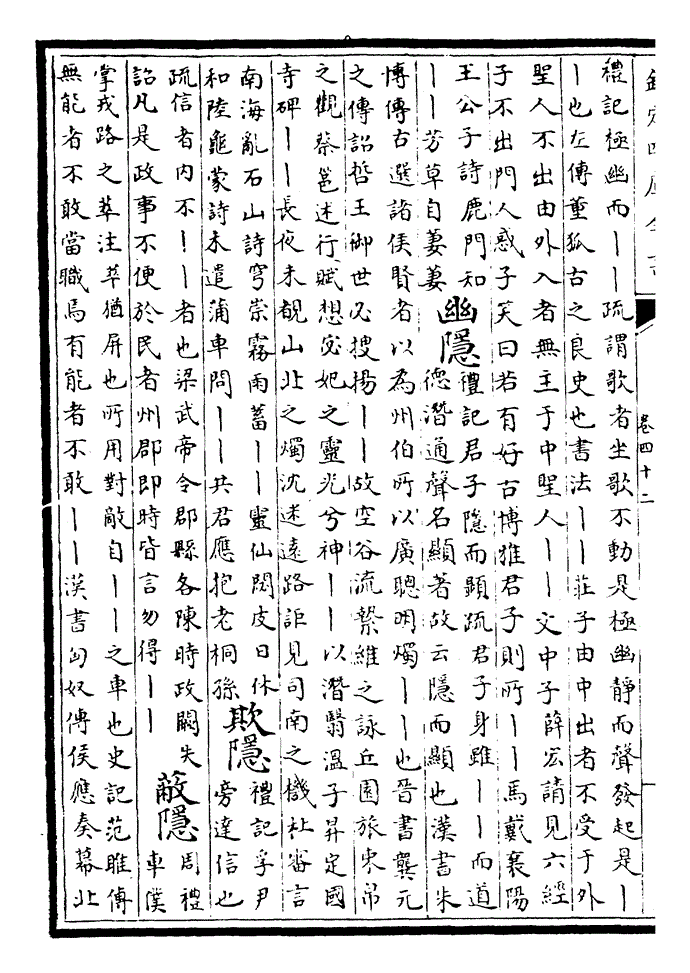 欽定四庫全書
卷四十二
禮記極幽而丨丨疏謂歌者坐歌不動是極幽靜而聲發起是丨
丨也左傳董狐古之良史也書法丨丨莊子由中出者不受于外
聖人不出由外入者無主于中聖人丨丨文中子薛宏請見六經
子不出門人惑子笑曰若有好古博雅君子則所丨丨馬戴襄陽
王公子詩鹿門知
丨丨芳草自萋萋
幽隱
禮記君子隱而顯疏君子身雖丨丨而道
德潛通聲名顯著故云隱而顯也漢書朱
博傳古選諸侯賢者以為州伯所以廣聰明燭丨丨也晉書龔元
之傳詔哲王御世必搜揚丨丨故空谷流縶維之詠丘園旅束帛
之觀蔡邕述行賦想宓妃之靈光兮神丨丨以潛翳溫子昇定國
寺碑丨丨長夜未覩山北之燭沈迷遠路詎見司南之機杜審言
南海亂石山詩穹崇霧雨蓄丨丨靈仙閟皮日休
和陸龜蒙詩未遣蒲車問丨丨共君應抱老桐孫
欺隱
禮記孚尹
旁達信也
疏信者内不丨丨者也梁武帝令郡縣各陳時政闕失
詔凡是政事不便於民者州郡即時皆言勿得丨丨
蔽隱
周禮
車僕
掌戎路之萃注萃猶屏也所用對敵自丨丨之車也史記范雎傳
無能者不敢當職焉有能者不敢丨丨漢書匈奴傳侯應奏幕北